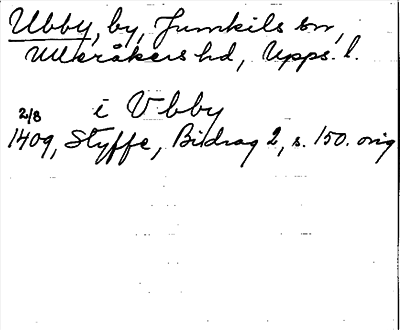 Ubby, by, Jumkils sn,
Ulleråkers hd, Upps. l.
i Vbby
2/8
1409, Styffe, Bidrag 2, s. 150. orig